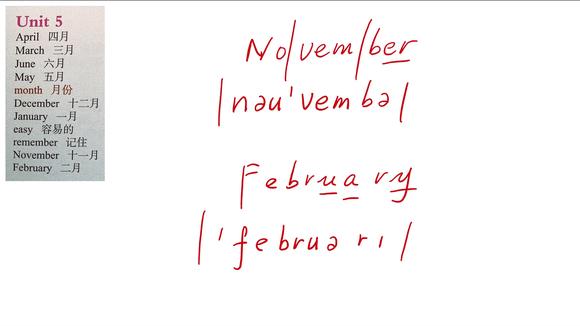 Unit 5
April 四月
March 三月
June 六月
May 五月
month 月份
December 十二月
January 一月
easy 容易的
remember 记住
November 十一月
February 二月
No/vem/ber
/nəu'vembə/
February
/'februəri/